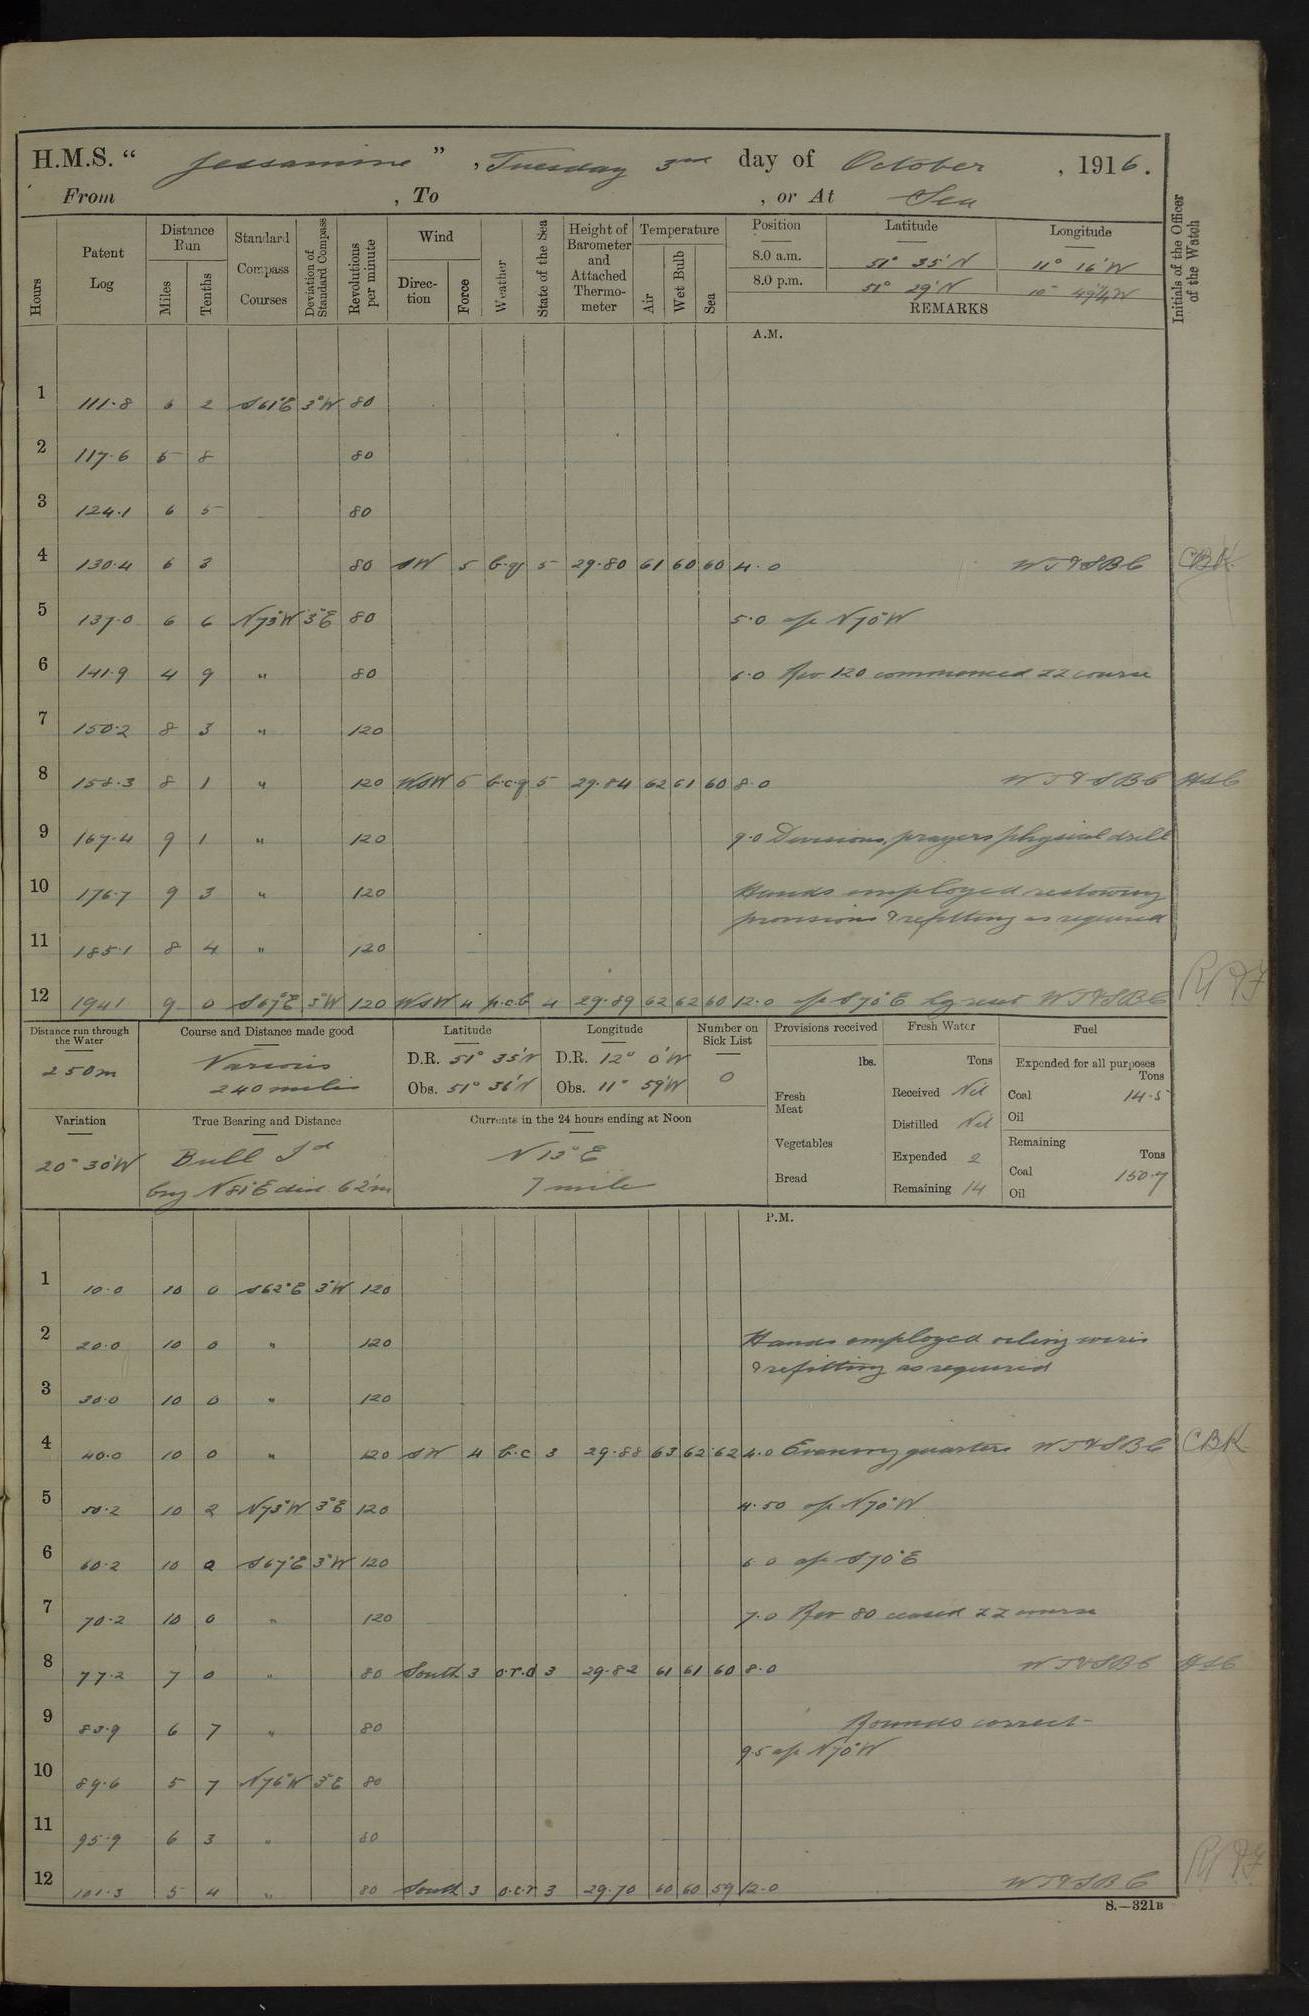 H.M.S. " Jessamine " , Tuesday 3rd day of October , 1916.
From , To , or At Sea
Hours
Patent Log
Distance Run
Miles
Tenths
Standard Compass Courses
Deviation of Standard Compass
Revolutions per minute
Wind
Direction
Force
Weather
State of the Sea
Height of Barometer and Attached Thermometer
Temperature
Air
Wet Bulb
Sea
Position Latitude Longitude
8.0 a.m. 51° 35'N 11° 16'W
8.0 p.m. 51° 29'N 10° 49¼'W
REMARKS
Initials of the Officer of the Watch
A.M.
1 111.8 6 2 S61°E 3°W 80
2 117.6 5 8 80
3 124.1 6 5 80
4 130.4 6 3 80 SW 5 b.q 5 29.80 61 60 60 4.0 WT&SBC CBK
5 137.0 6 6 N73°W 3°E 80 5.0 a/c N70°W
6 141.9 4 9 " 80 6.0 Rev 120 commenced ZZ course
7 150.2 8 3 " 120
8 158.3 8 1 " 120 WSW 5 b.c.q 5 29.84 62 61 60 8.0 WT&SBC
9 167.4 9 1 " 120 9.0 Divisions, prayers physical drill
10 176.7 9 3 " 120 Hands employed restowing
provisions & refitting as required
11 185.1 8 4 " 120
12 194.1 9 0 S67°E 3°W 120 WSW 4 p.c.b 4 29.89 62 62 60 12.0 a/c S70°E WT&SBC
Distance run through the Water
250m
Course and Distance made good
Various
240 miles
Latitude
D.R. 51° 35'N
Obs. 51° 36'N
Longitude
D.R. 12° 0'W
Obs. 11° 59'W
Number on Sick List
0
Provisions received
lbs.
Fresh Meat
Vegetables
Bread
Fresh Water
Tons
Received Nil
Distilled Nil
Expended 2
Remaining 14
Fuel
Expended for all purposes
Tons
Coal 14.5
Oil
Remaining
Tons
Coal 150.7
Oil
Variation
20° 30'W
True Bearing and Distance
Bull Id
brg N81°E dist 62m
Currents in the 24 hours ending at Noon
N13°E
7 mile
P.M.
1 10.0 10 0 S62°E 3°W 120
2 20.0 10 0 " 120 Hands employed oiling wires
& refitting as required
3 30.0 10 0 " 120
4 40.0 10 0 " 120 SW 4 b.c 3 29.88 63 62 62 4.0 Evening quarters WT&SBC CBK
5 50.2 10 2 N73°W 3°E 120 4.50 a/c N70°W
6 60.2 10 0 S67°E 3°W 120 6.0 a/c S70°E
7 70.2 10 0 " 120 7.0 Rev 80 ceased ZZ course
8 77.2 7 0 " 80 South 3 o.r.d 3 29.82 61 61 60 8.0 WT&SBC
9 83.9 6 7 " 80 Rounds correct
9.5 a/c N70°W
10 89.6 5 7 N76°W 3°E 80
11 95.9 6 3 " 80
12 101.3 5 4 " 80 South 3 o.c.r 3 29.70 60 60 59 12.0 WT&SBC
S.—321B